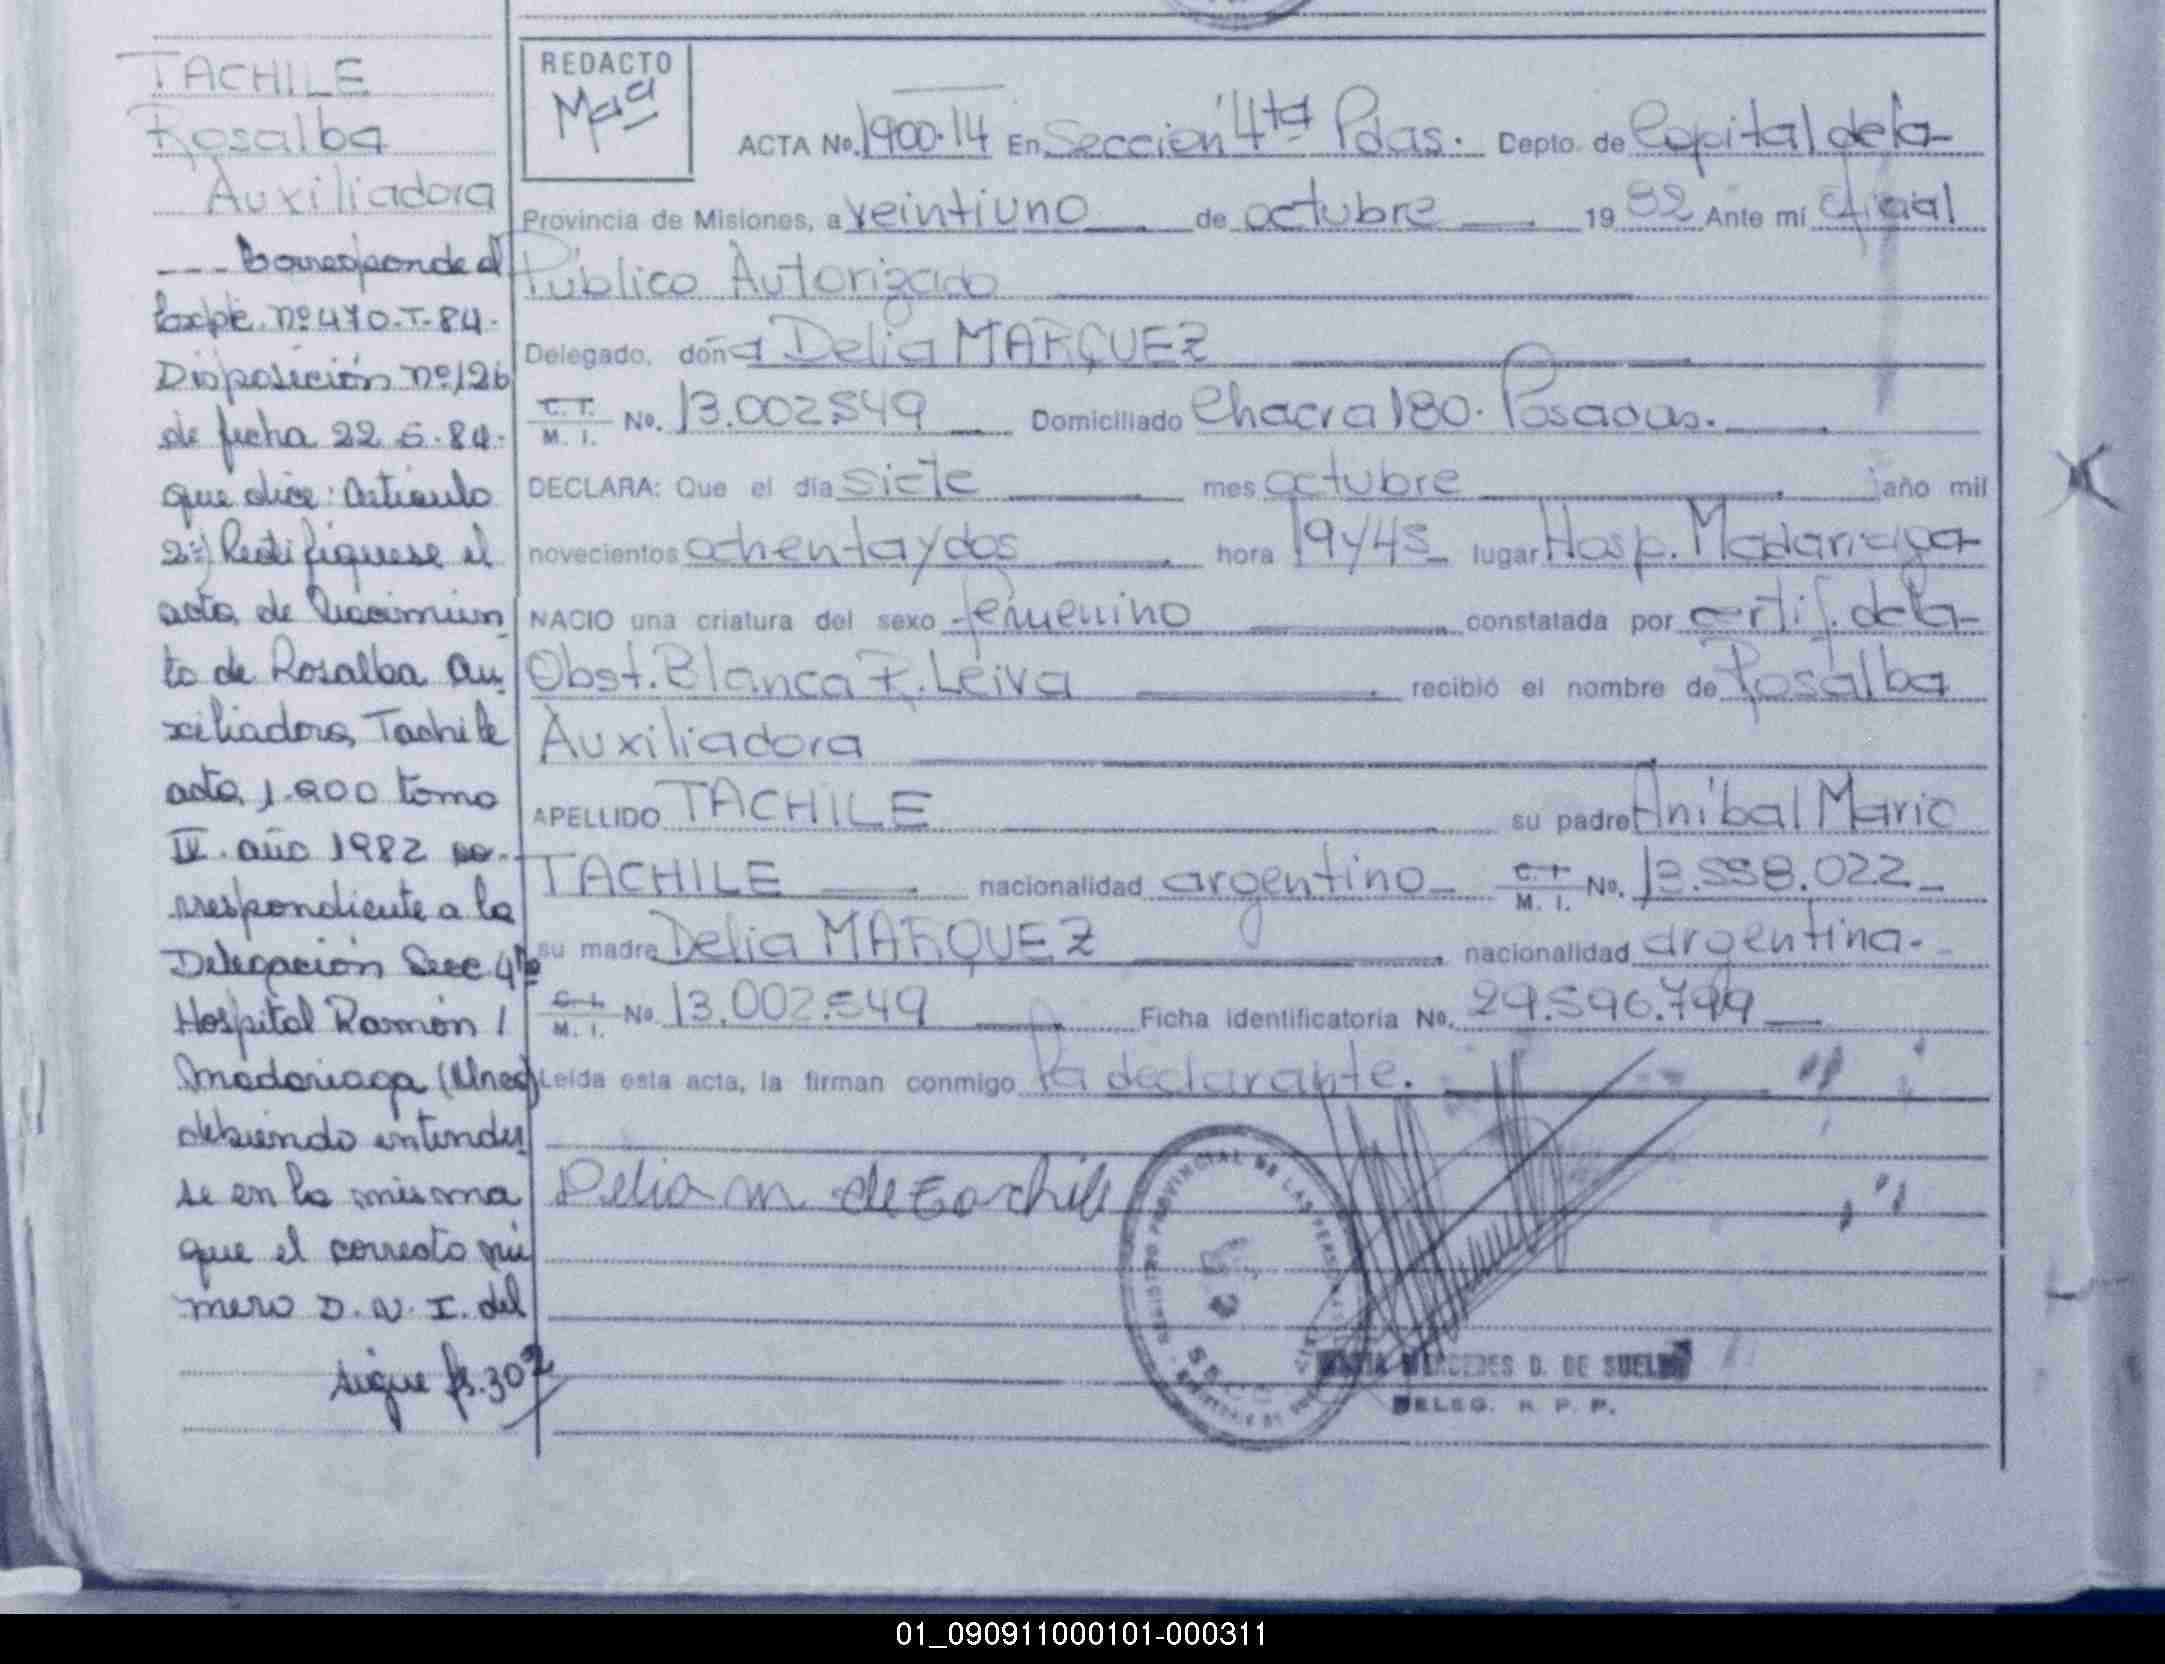 TACHILE
Rosalba
Auxiliadora
Corresponde al
Expte. nº 470.T-84-
Disposición nº 126
de fecha 22-5-84-
que dice: Artículo
2º) Rectifíquese el
acta de Nacimien
to de Rosalba Au-
xiliadora Tachile
acta 1.900 tomo
IV. año 1982 co-
rrespondiente a la
Delegación Secc 4ta
Hospital Ramón
Madariaga
debiendo entender
se en la misma
que el correcto nú
mero D.N.I. del
sigue fs. 302
REDACTO
Mªª
ACTA No. 1900-14 En Sección 4ta Pdas. Depto. de Capital de la
Provincia de Misiones, a veintiuno de octubre 1982 Ante mí Oficial
Público Autorizado
Delegado, doña Delia MARQUEZ
C. I. M. I. No. 13.002.549 Domiciliado Chacra 180. Posadas.
DECLARA: Que el día siete mes octubre año mil
novecientos ochenta y dos hora 19 y 45 lugar Hosp. Madariaga
NACIO una criatura del sexo femenino constatada por certif. de la
Obst. Blanca R. Leiva recibió el nombre de Rosalba
Auxiliadora
APELLIDO TACHILE su padre Aníbal Mario
TACHILE nacionalidad argentino C. I. M. I. No. 13.558.022
su madre Delia MARQUEZ nacionalidad argentina.
C. I. M. I. No. 13.002.549 Ficha identificatoria No. 29.596.799
Leída esta acta, la firman conmigo la declarante.
Delia M de Tachile
REGISTRO PROVINCIAL DE LAS PERSONAS
MARIA MERCEDES D. DE SUELDO
DELEG. R. P. P.
01_090911000101-000311